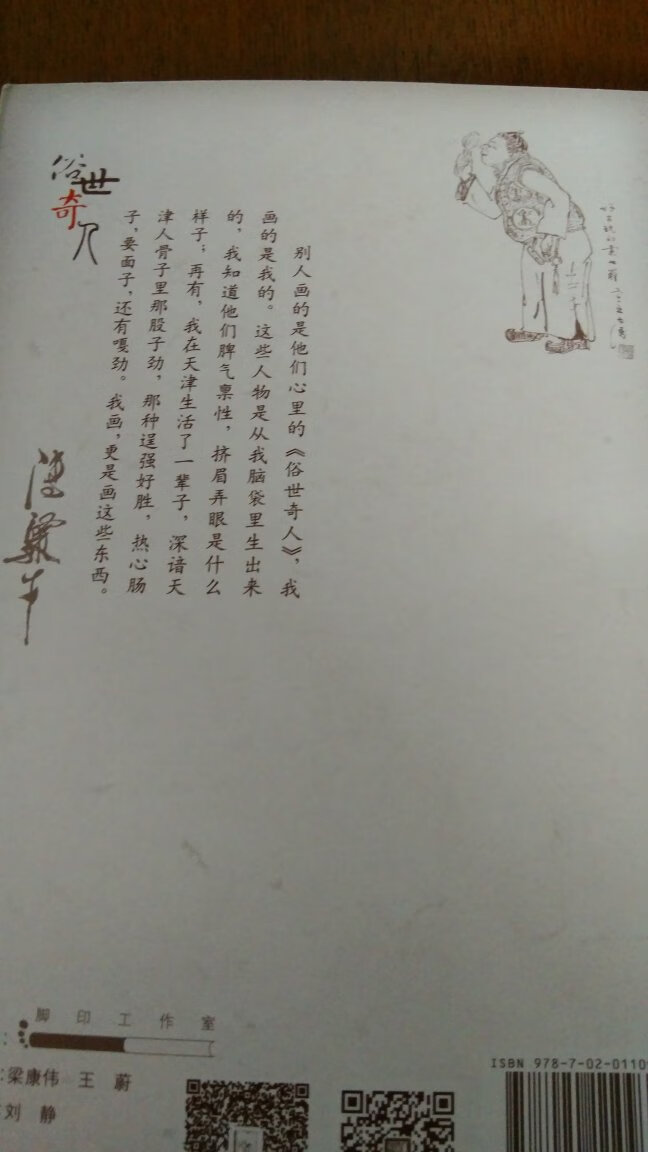 俗世奇人
别人画的是他们心里的《俗世奇人》，我
画的是我的。这些人物是从我脑袋里生出来
的，我知道他们脾气禀性，挤眉弄眼是什么
样子；再有，我在天津生活了一辈子，深谙天
津人骨子里那股子劲，那种逞强好胜，热心肠
子，要面子，还有嘎劲。我画，更是画这些东西。
脚印工作室
:梁康伟 王蔚
刘静
ISBN 978-7-02-0110